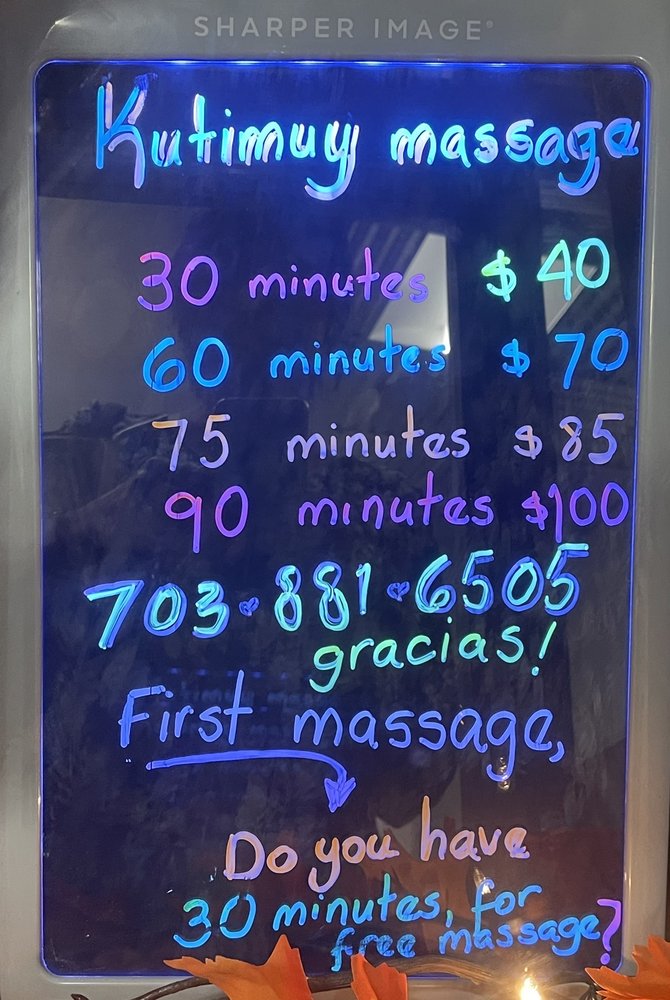 SHARPER IMAGE®
Kutimuy massage
30 minutes $40
60 minutes $70
75 minutes $85
90 minutes $100
703•881•6505
gracias!
First massage,
Do you have
30 minutes, for
free massage?